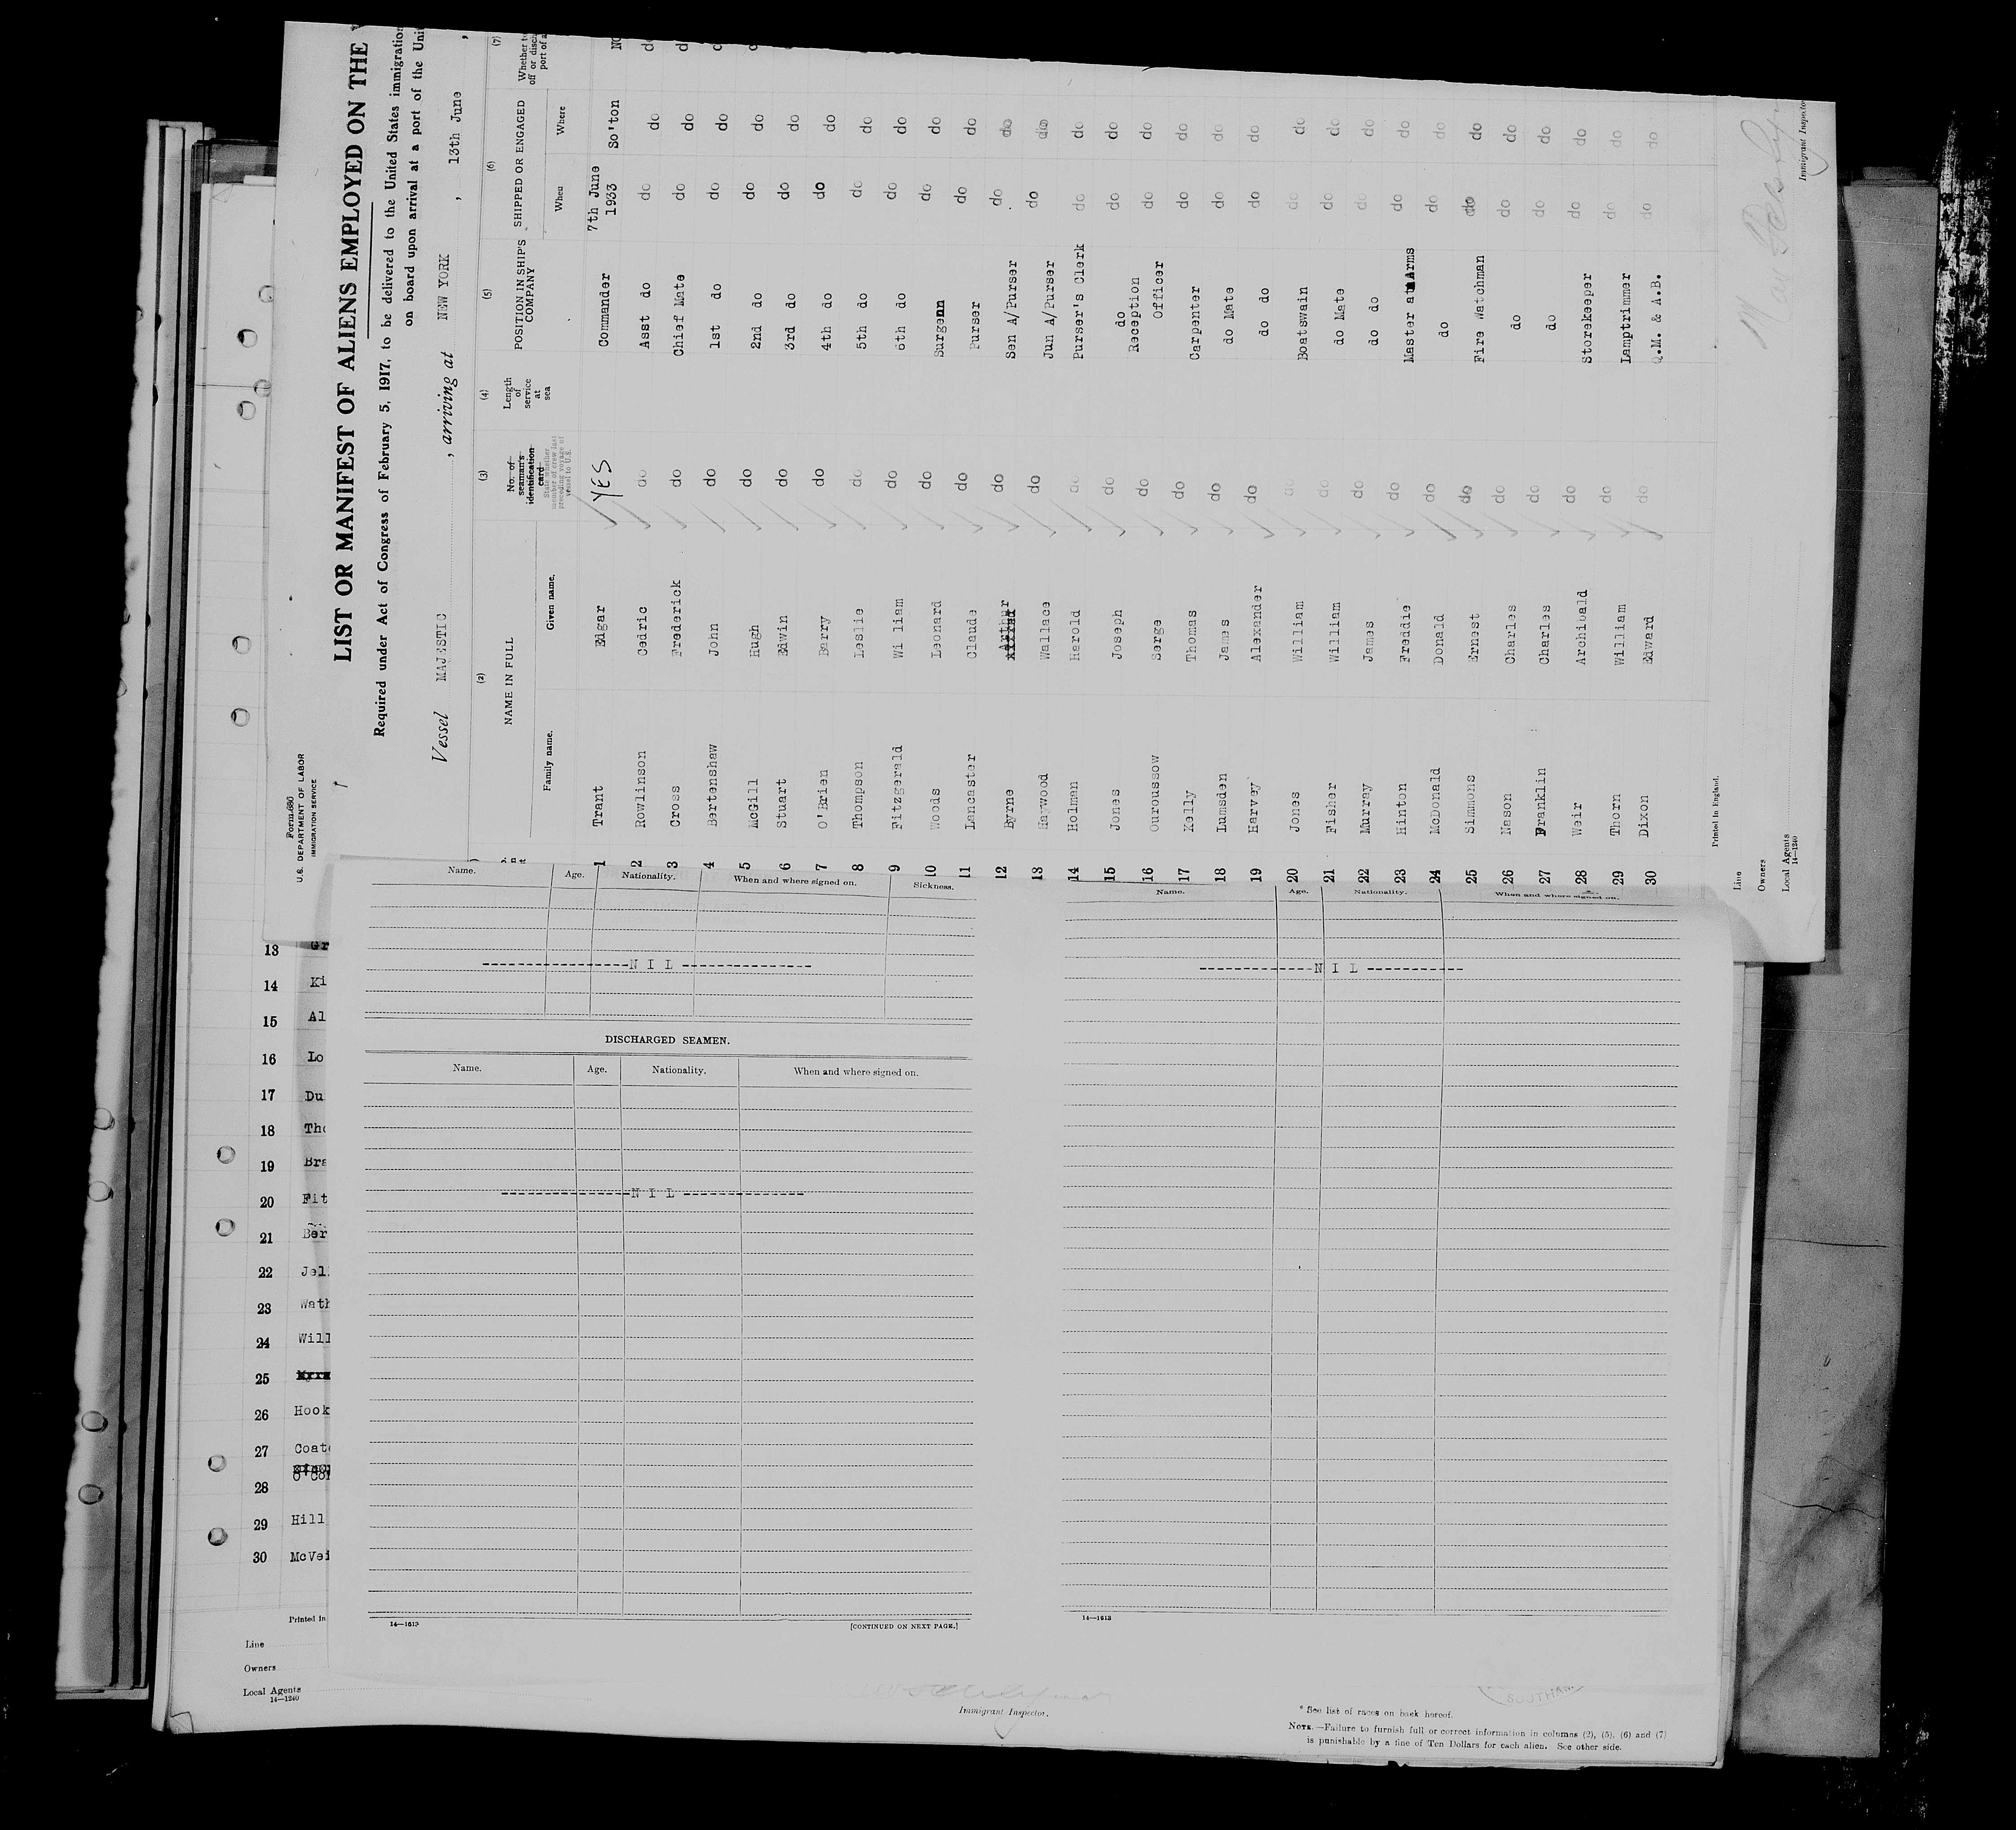 Form 680
U.S. DEPARTMENT OF LABOR
IMMIGRATION SERVICE
LIST OR MANIFEST OF ALIENS EMPLOYED ON THE
Required under Act of Congress of February 5, 1917, to be delivered to the United States
on board upon arrival at a port of the
Vessel MAJESTIC , arriving at NEW YORK , 13th June ,
(2) (3) (4) (5) (6) (7)
NAME IN FULL
Family name. Given name.
No. of seaman's identification card
State whether member of crew last preceding voyage of vessel to U.S.
Length of service at sea
POSITION IN SHIP'S COMPANY
SHIPPED OR ENGAGED
When Where
Whether to
off or
port of
1 Trant Edgar YES Commander 7th June 1933 So'ton
2 Rowlinson Cedric do Asst do do do
3 Cross Frederick do Chief Mate do do
4 Bertenshaw John do 1st do do do
5 McGill Hugh do 2nd do do do
6 Stuart Edwin do 3rd do do do
7 O'Brien Barry do 4th do do do
8 Thompson Leslie do 5th do do do
9 Fitzgerald Wi liam do 6th do do do
10 Woods Leonard do Surgenn do do
11 Lancaster Claude do Purser do do
12 Byrne Arthur do Sen A/Purser do do
13 Haywood Wallace do Jun A/Purser do do
14 Holman Harold do Purser's Clerk do do
15 Jones Joseph do do do do
16 Ouroussow Serge do Reception Officer do do
17 Kelly Thomas do Carpenter do do
18 Lumsden James do do Mate do do
19 Harvey Alexander do do do do do
20 Jones William do Boatswain do do
21 Fisher William do do Mate do do
22 Murray James do do do do do
23 Hinton Freddie do Master at Arms do do
24 McDonald Donald do do do do
25 Simmons Ernest do Fire Watchman do do
26 Nason Charles do do do do
27 Franklin Charles do do do do
28 Weir Archibald do Storekeeper do do
29 Thorn William do Lamptrimmer do do
30 Dixon Edward do Q.M. & A.B. do do
Printed in England.
Line
Owners
Local Agents
14—1240
Immigrant Inspector
Name. Age. Nationality. When and where signed on. Sickness.
NIL
DISCHARGED SEAMEN.
Name. Age. Nationality. When and where signed on.
NIL
14—1613
[CONTINUED ON NEXT PAGE.]
Name. Age. Nationality. When and where signed on.
NIL
14—1613
13 Gr
14 Ki
15 Al
16 Lo
17 Du
18 Tho
19 Bra
20 Fit
21 Ber
22 Jel
23 Wath
24 Will
25
26 Hook
27 Coat
28 O'Con
29 Hill
30 McVei
Printed in
Line
Owners
Local Agents
14—1240
Immigrant Inspector.
SOUTHAM
* See list of races on back hereof.
NOTE.—Failure to furnish full or correct information in columns (2), (5), (6) and (7)
is punishable by a fine of Ten Dollars for each alien. See other side.